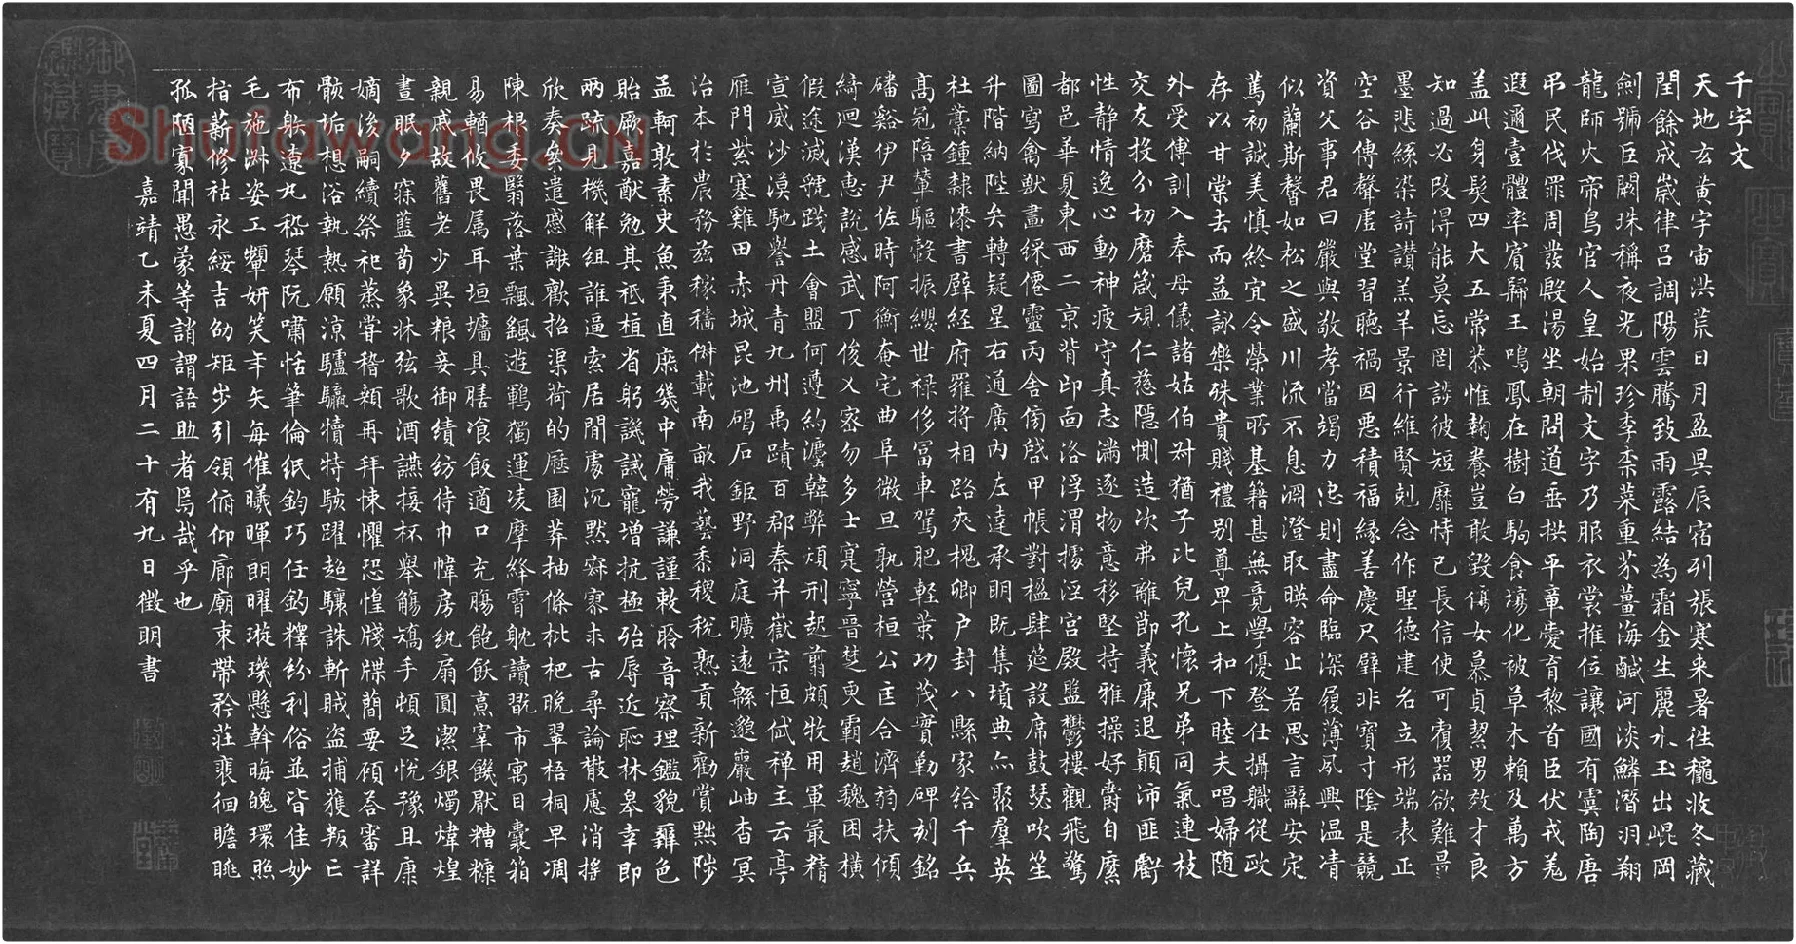 千字文
天地玄黃宇宙洪荒日月盈昃辰宿列張寒来暑往穐收冬藏
閏餘成歲律呂調陽雲騰致雨露結為霜金生麗水玉出崐岡
劍號巨闕珠稱夜光果珍李柰菜重芥薑海鹹河淡鱗潛羽翔
龍師火帝鳥官人皇始制文字乃服衣裳推位讓國有虞陶唐
弔民伐罪周發殷湯坐朝問道垂拱平章愛育黎首臣伏戎羌
遐邇壹體率賓歸王鳴鳳在樹白駒食場化被草木賴及萬方
盖此身髮四大五常恭惟鞠養豈敢毀傷女慕貞絜男效才良
知過必改得能莫忘罔談彼短靡恃己長信使可覆器欲難量
墨悲絲染詩讃羔羊景行維賢剋念作聖德建名立形端表正
空谷傳聲虛堂習聽禍因惡積福緣善慶尺璧非寶寸陰是競
資父事君曰嚴與敬孝當竭力忠則盡命臨深履薄夙興溫凊
似蘭斯馨如松之盛川流不息淵澄取暎容止若思言辭安定
篤初誠美慎終宜令榮業所基籍甚無竟學優登仕攝職從政
存以甘棠去而益詠樂殊貴賤禮別尊卑上和下睦夫唱婦随
外受傅訓入奉母儀諸姑伯叔猶子比兒孔懷兄弟同氣連枝
交友投分切磨箴規仁慈隱惻造次弗離節義廉退顛沛匪虧
性静情逸心動神疲守真志滿逐物意移堅持雅操好爵自縻
都邑華夏東西二京背邙面洛浮渭據涇宮殿盤鬱樓觀飛驚
圖寫禽獸畫綵僊靈丙舍傍啓甲帳對楹肆筵設席鼓瑟吹笙
升階納陛弁轉疑星右通廣內左達承明既集墳典亦聚羣英
杜藁鍾隸漆書壁經府羅將相路夾槐卿户封八縣家給千兵
高冠陪輦驅轂振纓世禄侈富車駕肥軽策功茂實勒碑刻銘
磻谿伊尹佐時阿衡奄宅曲阜微旦孰營桓公匡合濟弱扶傾
綺迴漢惠說感武丁俊乂密勿多士寔寧晉楚更霸趙魏困橫
假途滅虢踐土會盟何遵約灋韓弊煩刑起翦頗牧用軍最精
宣威沙漠馳譽丹青九州禹蹟百郡秦并嶽宗恒岱禅主云亭
雁門紫塞雞田赤城昆池碣石鉅野洞庭曠遠緜邈巖岫杳冥
治本於農務茲稼穡俶載南畝我藝黍稷稅熟貢新勸賞黜陟
孟軻敦素史魚秉直庶幾中庸勞謙謹敕聆音察理鑑貌辯色
貽厥嘉猷勉其祗植省躬譏誡寵增抗極殆辱近恥林皋幸即
兩疏見機解組誰逼索居閒處沉默寂寥求古尋論散慮逍搖
欣奏絫遣慼謝歡招渠荷的歷園莽抽條枇杷晚翠梧桐早凋
陳根委翳落葉飄颻遊鵾獨運凌摩絳霄躭讀翫市寓目囊箱
易輶攸畏屬耳垣墉具膳飡飯適口充腸飽飫烹宰饑厭糟糠
親戚故舊老少異粮妾御績紡侍巾帷房紈扇圓潔銀燭煒煌
晝眠夕寐藍荀象牀弦歌酒讌接杯舉觴矯手頓足悅豫且康
嫡後嗣續祭祀蒸嘗稽顙再拜悚懼恐惶牋牒簡要顧荅審詳
骸垢想浴執熱願涼驢驘犢特駭躍超驤誅斬賊盗捕獲叛亡
布射遼丸嵇琴阮嘯恬筆倫紙鈞巧任釣釋紛利俗並皆佳妙
毛施淑姿工顰妍笑年矢每催曦暉朗曜璇璣懸斡晦魄環照
指薪修祜永綏吉劭矩步引領俯仰廊廟束帶矜莊裵徊瞻眺
孤陋寡聞愚蒙等誚謂語助者焉哉乎也
嘉靖乙未夏四月二十有九日徵明書
徵明
御書房鑒藏寶
Shufawang.CN